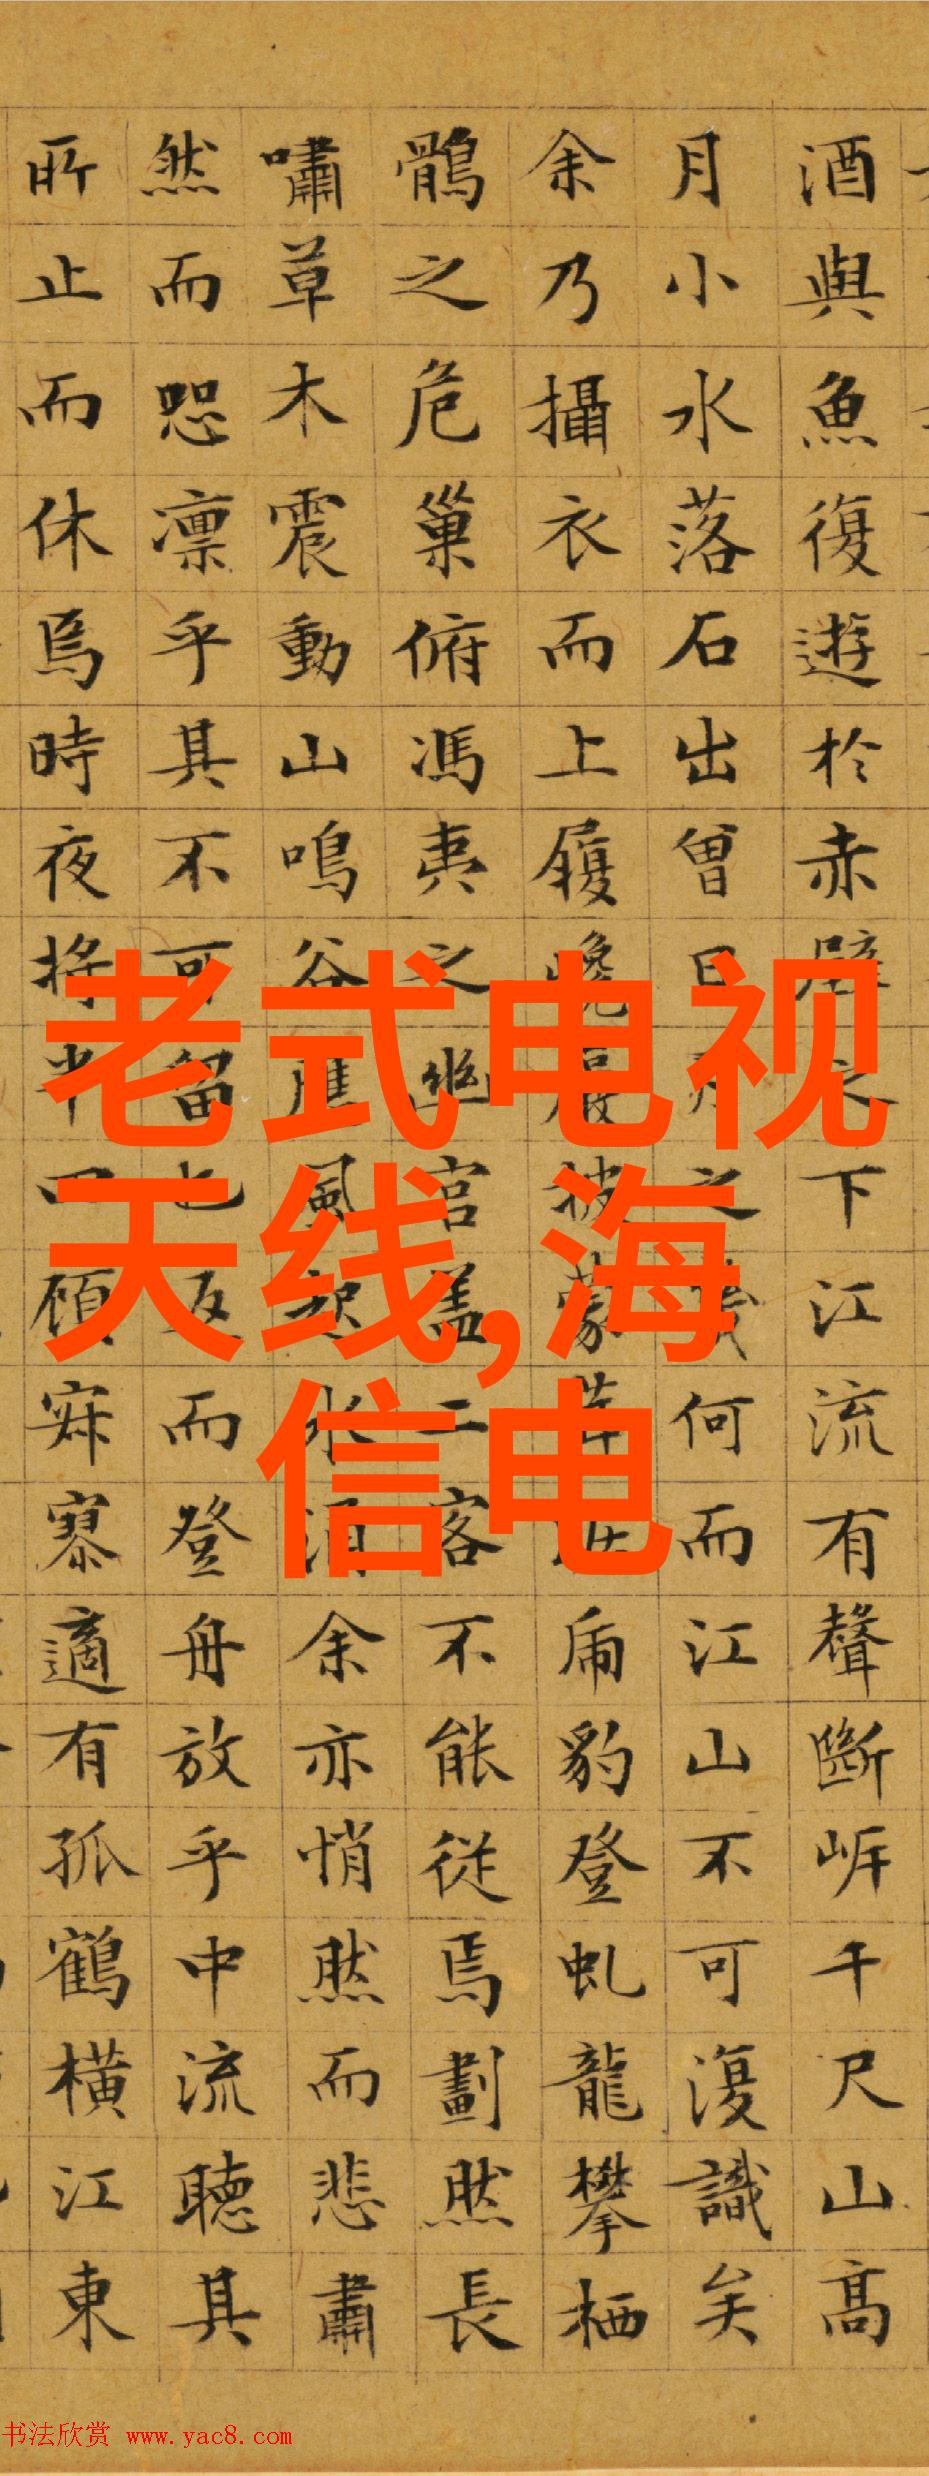 酒與魚復遊於赤壁之下江流有聲斷岸千尺山高
月小水落石出曾日月之幾何而江山不可復識矣
余乃攝衣而上履巉巖披蒙茸踞虎豹登虬龍攀栖
鶻之危巢俯馮夷之幽宮蓋二客不能從焉劃然長
嘯草木震動山鳴谷應風起水涌余亦悄然而悲肅
然而恐凜乎其不可留也返而登舟放乎中流聽其
所止而休焉時夜將半四顧寂寥適有孤鶴橫江東
老式电视
天线,海
信电
书法欣赏 www.yac8.com